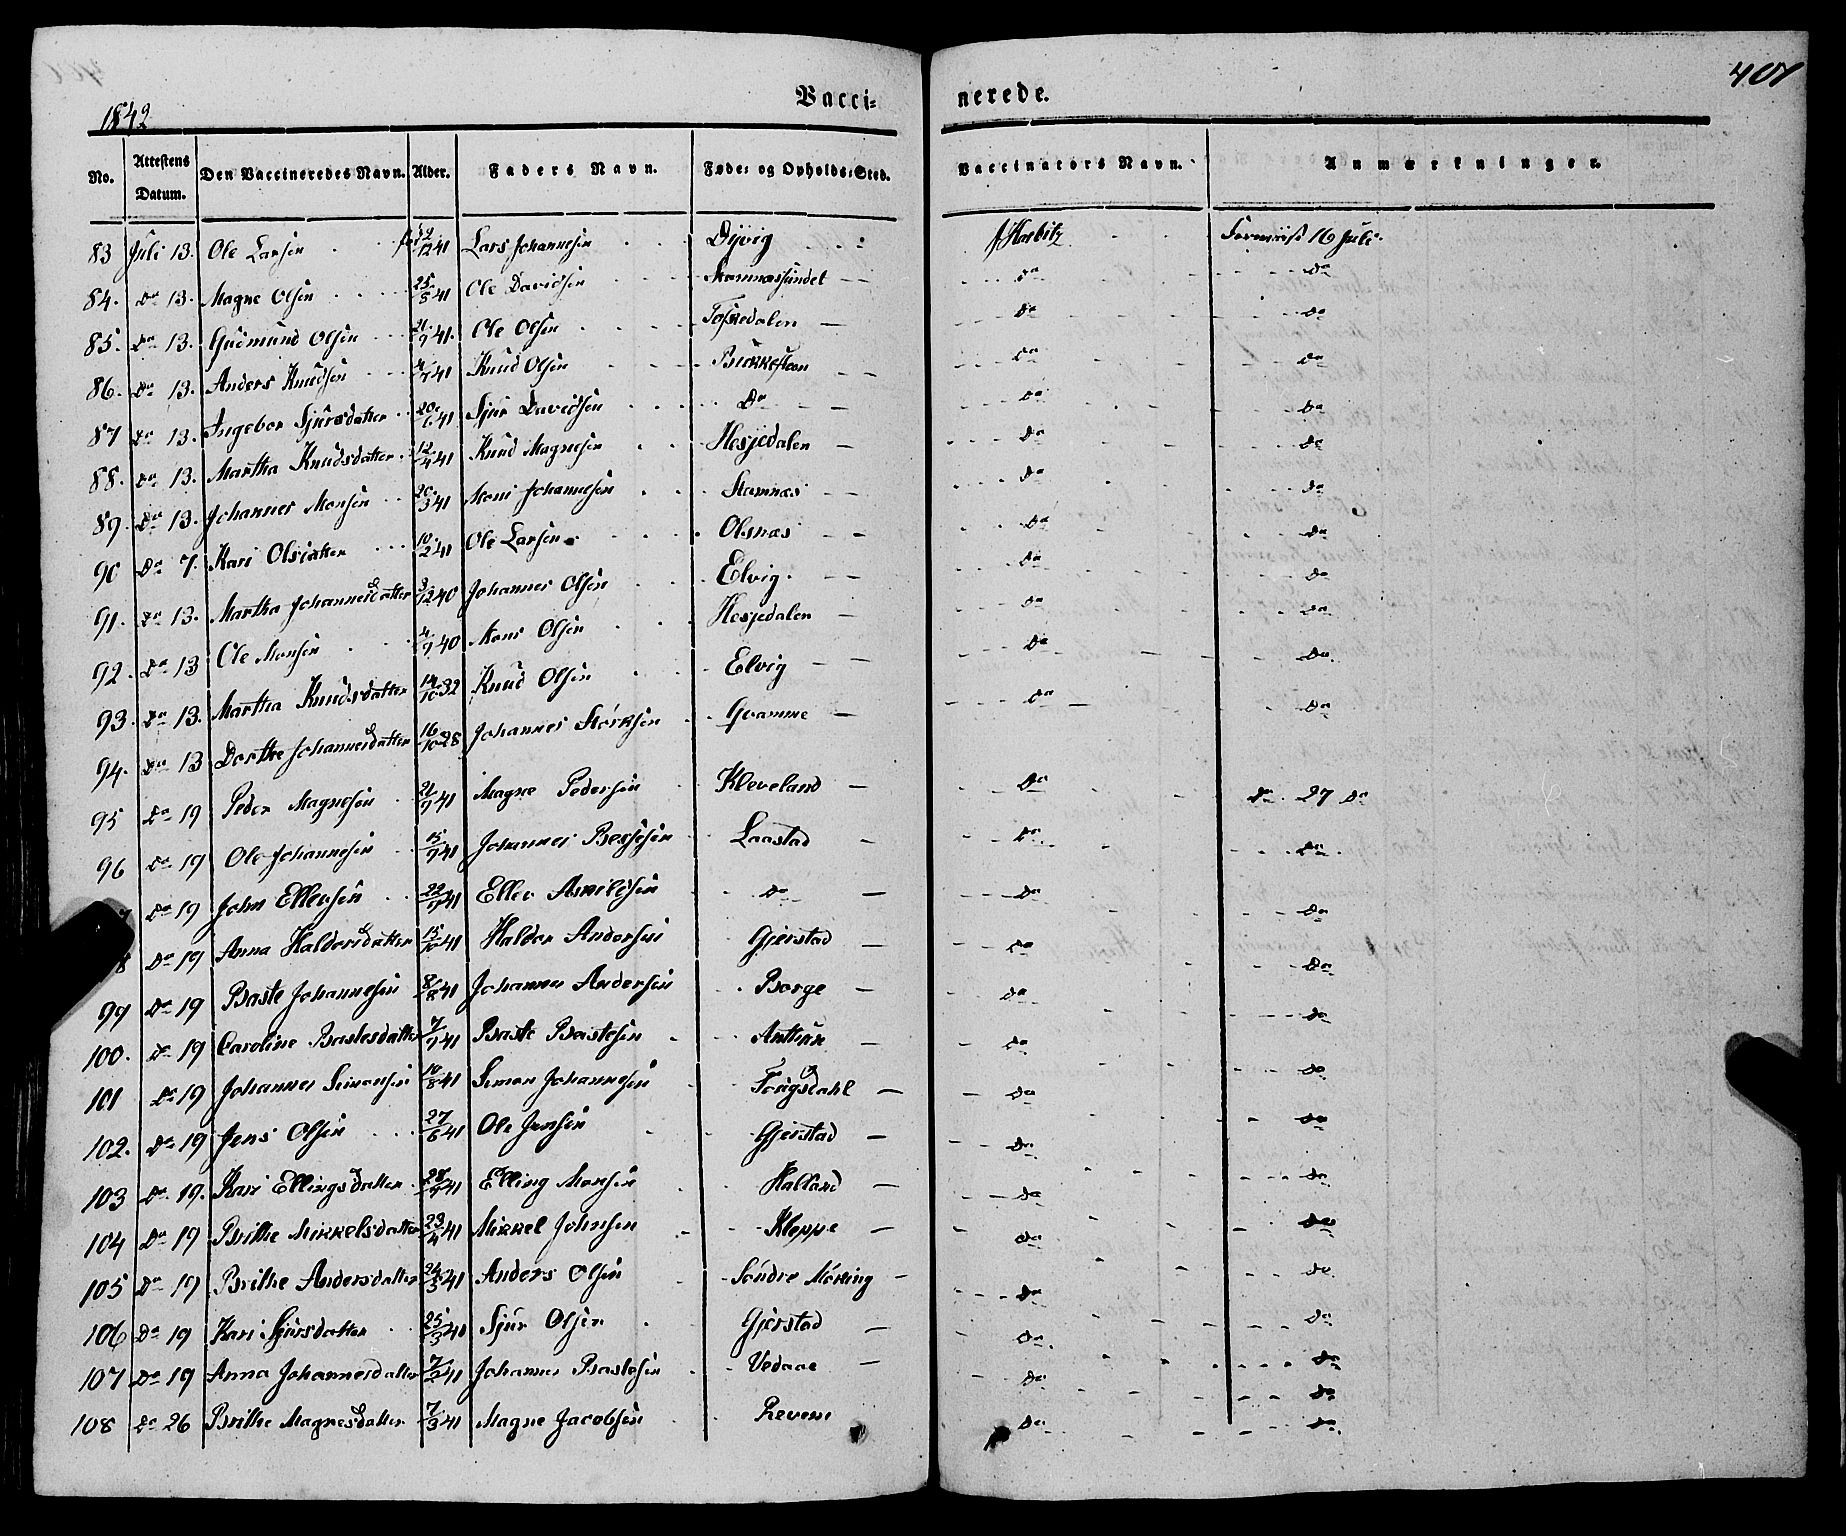 407
1842
Vacci- nerede.
No. Attestens Datum. Den Vaccineredes Navn. Alder. Faders Navn. Føde- og Opholds-Sted. Vaccinators Navn. Anmærkninger.
83 Juli 13. Ole Larsen 41 Lars Johannesen Dyvig Harbitz 16 Juli.
84. Do 13. Magne Olsen 25/8 41 Ole Davidsen Stamnæssundet Do Do
85. Do 13. Gudmund Olsen 21/9 41. Ole Olsen Toskedalen Do Do
86. Do 13. Anders Knudsen 4/7 41 Knud Olsen Do Do
87 Do 13. Ingebor Sjursdatter 20/6 41 Sjur Davidsen Do Do Do
88. Do 13. Martha Knudsdatter 12/4 41 Knud Magnesen Hesjedalen Do Do
89. Do 13. Johannes Monsen 20/3 41 Mons Johannesen Stamnæs Do Do
90 Do 7. Kari Olsdatter 10/2 41 Ole Larsen Olsnæs Do Do
91. Do 13. Martha Johannesdatter 3/12 40 Johannes Olsen Elvig. Do Do
92. Do 13 Ole Monsen 4/9 40 Mons Olsen Hesjedalen Do Do
93. Do 13. Martha Knudsdatter 14/10 32 Knud Olsen Elvig Do Do
94. Do 13 Dorthe Johannesdatter 16/10 28 Johannes Størksen Qvamme Do Do
95 Do 19 Peder Magnesen 21/9 41 Magne Pedersen Kleveland Do Do 27 Do
96 Do 19 Ole Johannesen 15/9 41 Johannes Laastad Do Do
Do 19 John Ellevsen 22/9 41 Ellev Do Do Do
8 Do 19 Anna Haldorsdatter 15/10 41 Haldor Andersen Gjerstad Do Do
99 Do 19 Baste Johannesen 8/8 41 Johannes Andersen Borge Do Do
100. Do 19 Caroline Bastesdatter 7/9 41 Baste Bastesen Do Do
101 Do 19 Johannes Simonsen 10/8 41 Simon Johannesen Do Do
102. Do 19 Jens Olsen 27/6 41 Ole Jensen Gjerstad Do Do
103 Do 19. Kari Ellingsdatter 41 Elling Monsen Halland Do Do
104 Do 19 Brithe Mikkelsdatter 23/4 41 Mikkel Johnsen Kleppe Do Do
105 Do 19 Brithe Andersdatter 24/3 41 Anders Olsen Søndre Do Do
106 Do 19 Kari Sjursdatter 25/3 41 Sjur Olsen Gjerstad Do Do
107 Do 19 Anna Johannesdatter 41 Johannes Bastesen Vedaae Do Do
108 Do 26 Brithe Magnesdatter 7/3 41 Magne Jacobsen Do Do